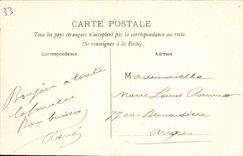 33
CARTE POSTALE
Tous les pays étrangers n'acceptent pas la correspondance au recto.
(Se renseigner à la Poste)
Correspondance
Adresse
Bonjour à toute
la famille
Bons baisers
René
Mademoiselle
Marie Louise
rue
Angers